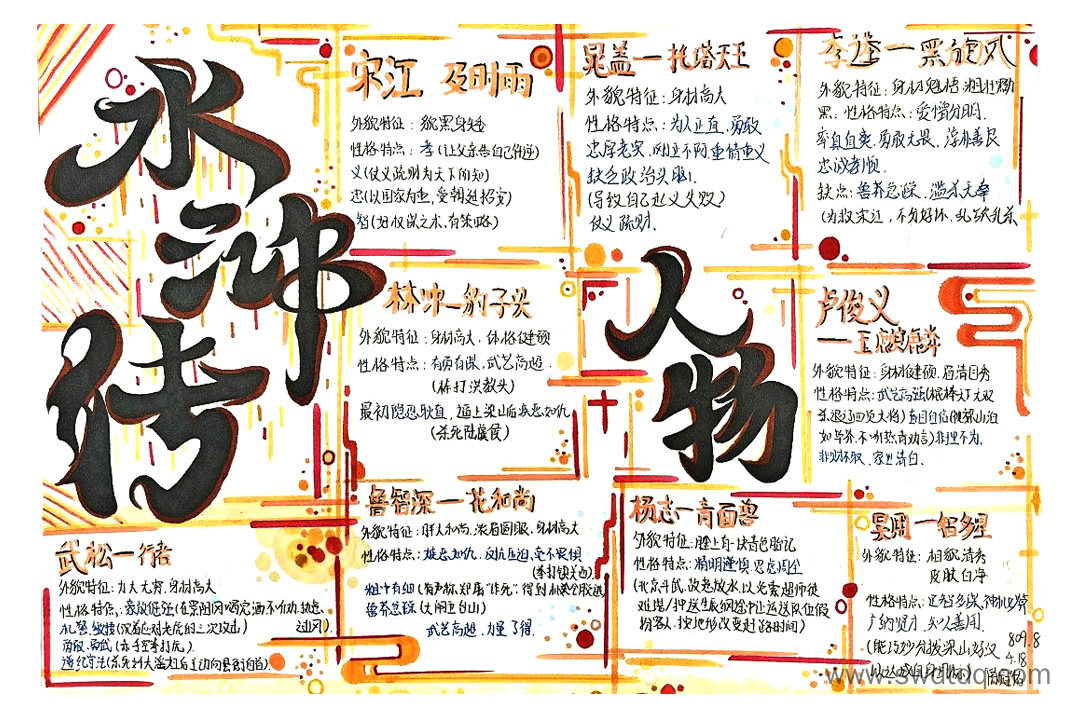 水浒传
人物
宋江 及时雨
外貌特征：貌黑身矮
性格特点：孝（让父亲告自己忤逆）
义（仗义疏财为天下所知）
忠（以国家为重，受朝廷招安）
智（对权谋之术，有策略）
晁盖一托塔天王
外貌特征：身材高大
性格特点：为人正直，勇敢
忠厚老实，刚正不阿，重情重义
缺乏政治头脑
（导致自己起义失败）
仗义疏财.
李逵一黑旋风
外貌特征：身材魁梧，粗壮黝
黑。性格特点：爱憎分明.
率直自爽.勇敢无畏、
忠诚孝顺.
缺点：鲁莽急躁、
（为救宋江，不分好坏、乱砍乱杀
林冲一豹子头
外貌特征：身材高大、体格健硕
性格特点：有勇有谋、武艺高超.
（棒打洪教头）
最初隐忍耿直，逼上梁山后疾恶如仇
（杀死陆虞侯）
卢俊义
一玉麒麟
外貌特征：身材健硕.眉清目秀
性格特点：武艺高强（棍棒天下无双
杀退辽四员大将）盲目自信（视梁山泊
如草芥.不听燕青劝言）非理不为.
非财不取.家世清白.
武松一行者
外貌特征：力大无穷.身材高大
性格特点：勇敢倔强（在景阳冈喝完酒不听劝.执意
过冈）.
机警敏捷（沉着应对老虎的三次攻击）
勇敢.勇武（赤手空拳打虎）.
鲁智深一花和尚
外貌特征：胖大和尚.浓眉圆眼.身材高大
性格特点：嫉恶如仇 反抗压迫，
（拳打镇关西）
粗中有细
鲁莽急躁（大闹五台山）
武艺高超、力量了得.
杨志一青面兽
外貌特征：脸上有一块青色胎记
性格特点：精明谨慎.思虑周全
（北京斗武.故意放水.以免索超师徒
难堪/押送生辰纲途中让运送队伍假
扮客人.按地形改变赶路时间）
吴用一智多星
外貌特征：相貌清秀
皮肤白净
性格特点：足智多谋、神机妙算
广纳贤才.知人善用.
（能巧妙分拨梁山好汉
809.8
4.18
www.swdtdq.com